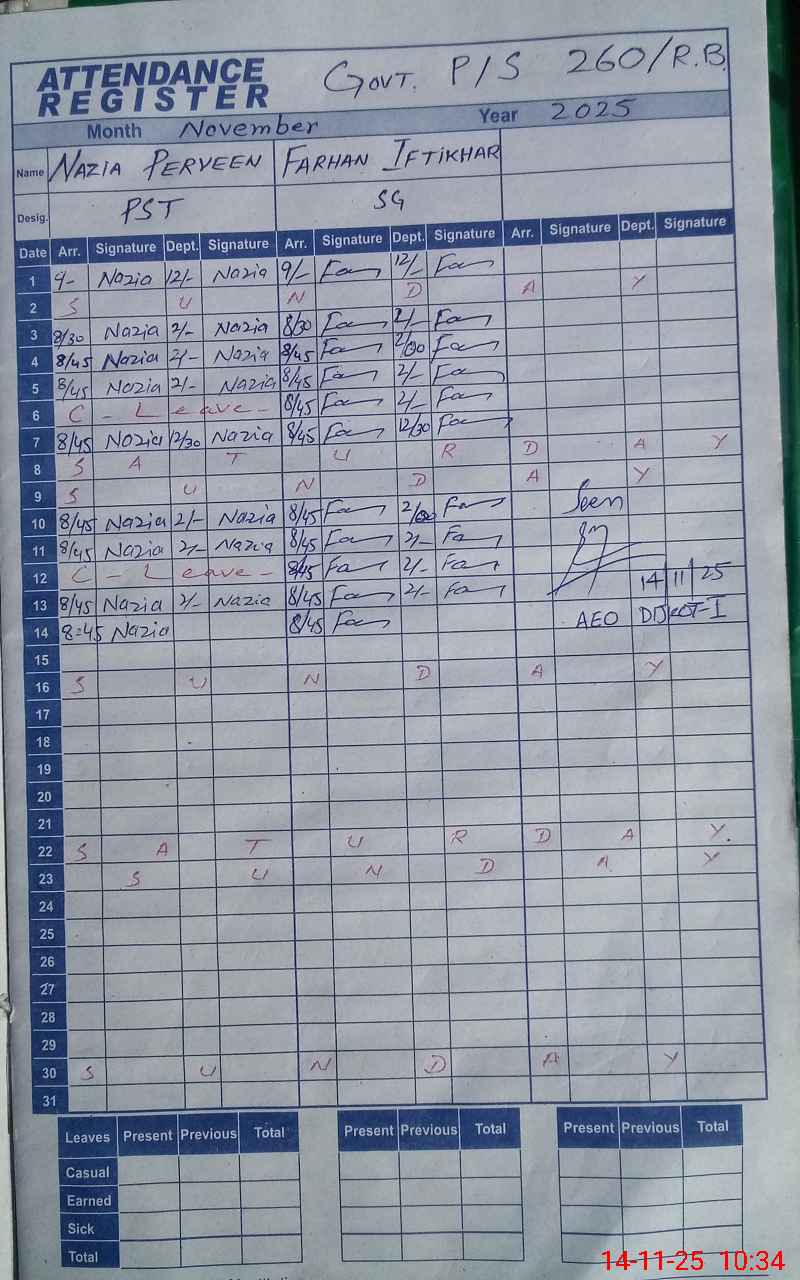 ATTENDANCE REGISTER GOVT. P/S 260/R.B.
Month November Year 2025
Name NAZIA PERVEEN FARHAN IFTIKHAR
Desig. PST SG
Date Arr. Signature Dept. Signature Arr. Signature Dept. Signature Arr. Signature Dept. Signature
1 9- Nazia 12/- Nazia 9/- 12/-
2 S U N D A Y
3 8/30 Nazia 2/- Nazia 8/30 2/-
4 8/45 Nazia 2/- Nazia 8/45 2/00
5 8/45 Nazia 2/- Nazia 8/45 2/-
6 C - Leave - 8/45 2/-
7 8/45 Nazia 12/30 Nazia 8/45 12/30
8 S A T U R D A Y
9 S U N D A Y
10 8/45 Nazia 2/- Nazia 8/45 2/00 Seen
11 8/45 Nazia 2/- Nazia 8/45 2/-
12 C - Leave - 8/45 2/- 14/11/25
13 8/45 Nazia 2/- Nazia 8/45 2/-
14 8=45 Nazia 8/45 AEO
15
16 S U N D A Y
17
18
19
20
21
22 S A T U R D A Y.
23 S U N D A Y
24
25
26
27
28
29
30 S U N D A Y
31
Leaves Present Previous Total Present Previous Total Present Previous Total
Casual
Earned
Sick
Total
14-11-25 10:34